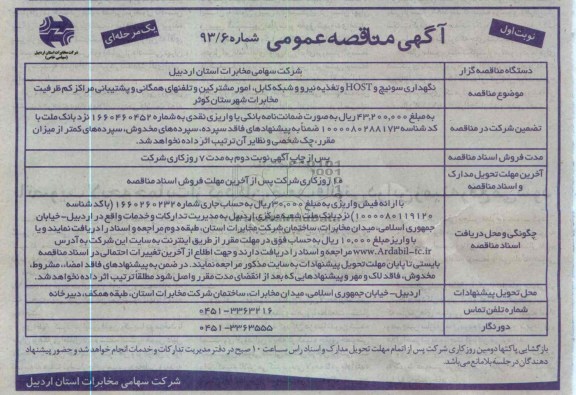 نوبت اول
آگهی مناقصه عمومی شماره ۹۳/۶
یک مرحله‌ای
شرکت مخابرات استان اردبیل
(سهامی خاص)
دستگاه مناقصه گزار
شرکت سهامی مخابرات استان اردبیل
موضوع مناقصه
نگهداری سوئیچ و HOST و تغذیه نیرو و شبکه کابل، امور مشترکین و تلفنهای همگانی و پشتیبانی مراکز کم ظرفیت
مخابرات شهرستان کوثر
تضمین شرکت در مناقصه
به مبلغ ۴۳,۲۰۰,۰۰۰ ریال به صورت ضمانت‌نامه بانکی یا واریزی نقدی به شماره ۱۶۶۰۴۶۰۴۵۲ نزد بانک ملت با
کد شناسه ۱۰۰۰۰۸۰۲۸۸۱۷۳ ضمناً به پیشنهادهای فاقد سپرده، سپرده‌های مخدوش، سپرده‌های کمتر از میزان
مقرر، چک شخصی و نظایر آن ترتیب اثر داده نخواهد شد.
مدت فروش اسناد مناقصه
پس از چاپ آگهی نوبت دوم به مدت ۷ روز کاری شرکت
آخرین مهلت تحویل مدارک
و اسناد مناقصه
روز کاری شرکت پس از آخرین مهلت فروش اسناد مناقصه
چگونگی و محل دریافت
اسناد مناقصه
با ارائه فیش واریزی به مبلغ ۳۰,۰۰۰ ریال به حساب جاری شماره ۱۶۶۰۲۶۰۲۳۲ (با کد شناسه
۱۰۰۰۰۸۰۱۱۹۱۲۰) نزد بانک ملت شعبه مرکزی اردبیل به مدیریت تدارکات و خدمات واقع در اردبیل-خیابان
جمهوری اسلامی، میدان مخابرات، ساختمان شرکت مخابرات استان، طبقه دوم مراجعه و اسناد را دریافت نمایند و یا
با واریز مبلغ ۱۰,۰۰۰ ریال به حساب فوق در مهلت مقرر از طریق اینترنت به سایت این شرکت به آدرس
www.Ardabil-tc.ir مراجعه و اسناد را دریافت دارند و جهت اطلاع از آخرین تغییرات احتمالی در اسناد مناقصه
بایستی تا پایان مهلت تحویل پیشنهادات به سایت مذکور مراجعه نمایند. در ضمن به پیشنهادهای فاقد امضاء، مشروط،
مخدوش، فاقد لاک و مهر و پیشنهادهایی که بعد از انقضای مدت مقرر واصل شود مطلقا ترتیب اثر داده نخواهد شد.
محل تحویل پیشنهادات
اردبیل- خیابان جمهوری اسلامی، میدان مخابرات، ساختمان شرکت مخابرات استان، طبقه همکف، دبیرخانه
شماره تلفن تماس
۰۴۵۱-۳۳۶۳۲۱۶
دورنگار
۰۴۵۱-۳۳۶۳۵۵۵
بازگشایی پاکتها دومین روز کاری شرکت پس از اتمام مهلت تحویل مدارک و اسناد راس ساعت ۱۰ صبح در دفتر مدیریت تدارکات و خدمات انجام خواهد شد و حضور پیشنهاد
دهندگان در جلسه بلامانع می‌باشد.
شرکت سهامی مخابرات استان اردبیل